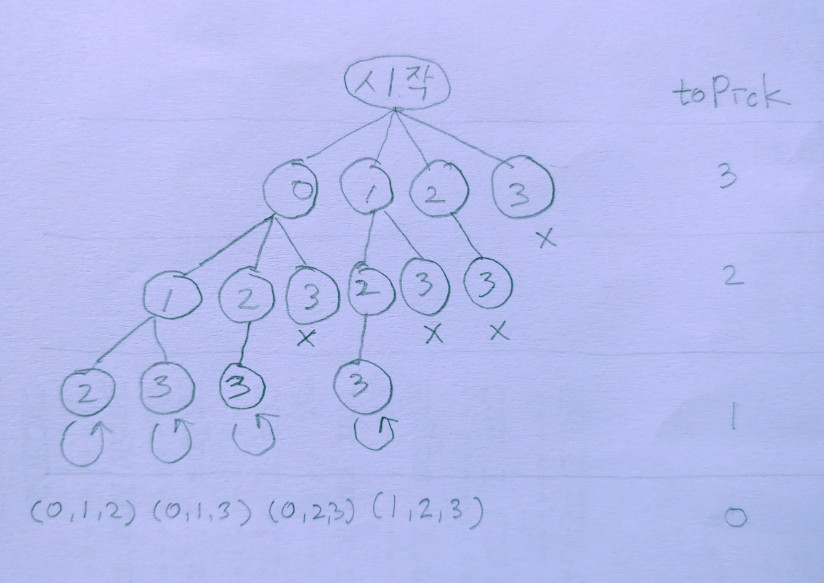 시작
toPick
0 1 2 3 3
x
1 2 3 2 3 3 2
x x x
2 3 3 3
1
(0,1,2) (0,1,3) (0,2,3) (1,2,3)
0